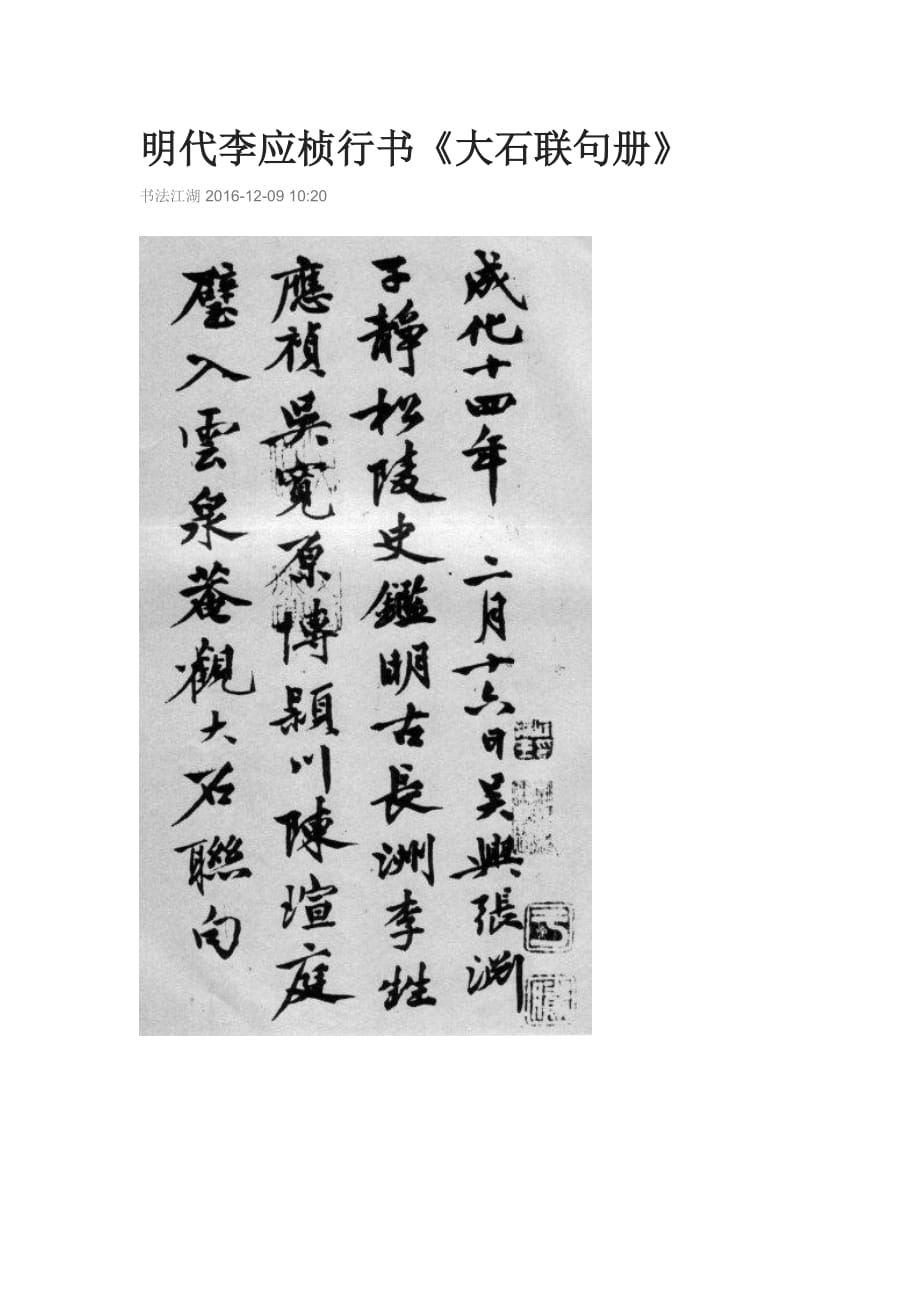 明代李应桢行书《大石联句册》
书法江湖 2016-12-09 10:20
成化十四年 二月十六日吴興張淵
子靜松陵史鑑明古長洲李甡
應禎吳寬原博潁川陳瑄庭
璧入雲泉菴觀大石聯句